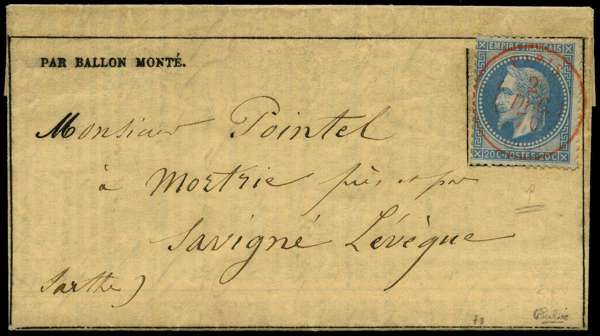 EMPIRE FRANÇAIS
PAR BALLON MONTÉ.
20 C POSTES 20 C
Monsieur Pointel
à Mortrie près et par
Savigné Lévêque
Sarthe)
73